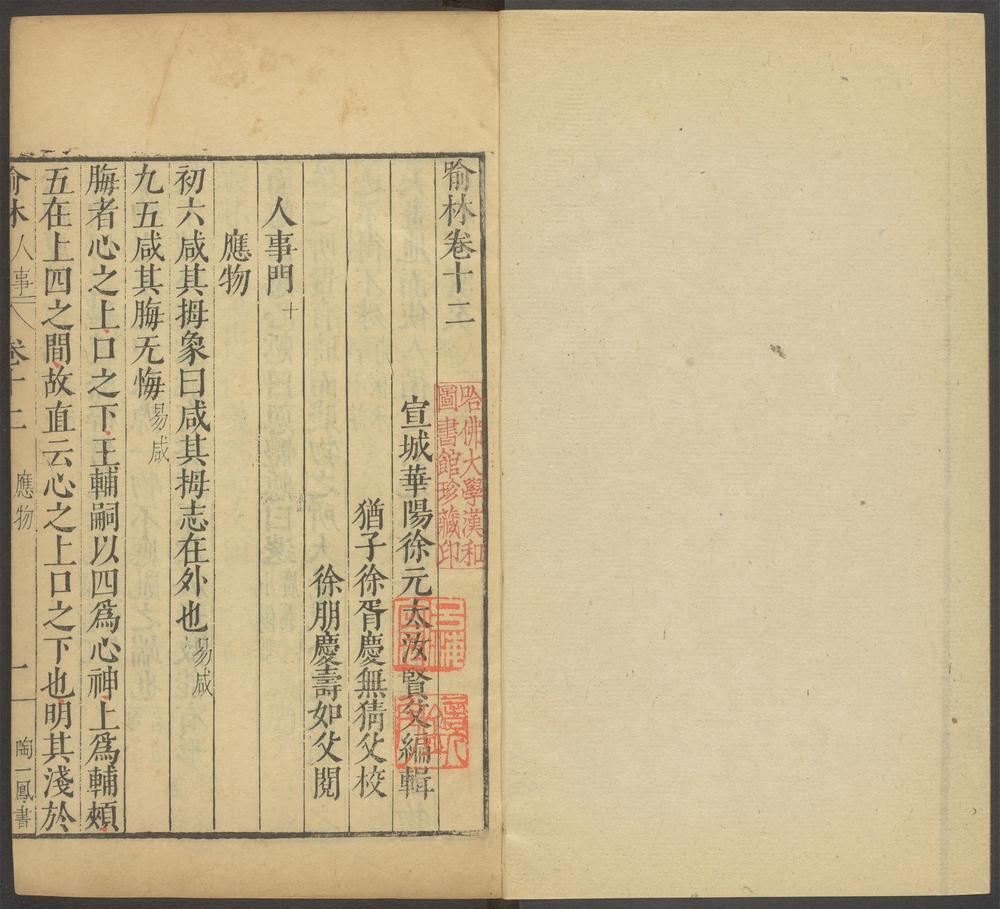 喻林卷十二
宣城華陽徐元太汝賢父編輯
猶子徐胥慶無猜父校
徐朋慶壽如父閱
人事門十
應物
初六咸其拇象曰咸其拇志在外也易咸
九五咸其脢无悔易咸
脢者心之上口之下王輔嗣以四爲心神上爲輔頰
五在上四之間故直云心之上口之下也明其淺於
喻林人事 卷十二 應物 一 陶一鳳書
哈佛大學漢和
圖書館珍藏印